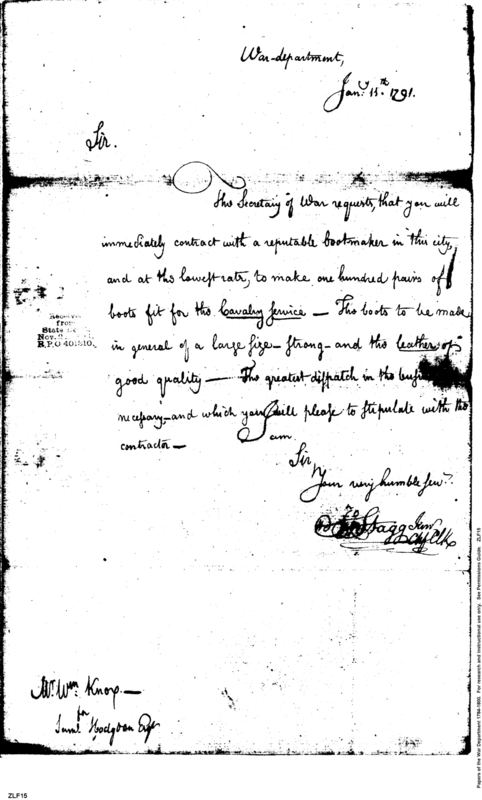 War-department,
Jany. 11th. 1791.
Sir.
The Secretary of War requests, that you will
immediately contract with a reputable bootmaker in this city,
and at the lowest rate, to make one hundred pairs of
boots fit for the Cavalry Service — The boots to be made
in general of a large size — strong — and the leather of
good quality — The greatest dispatch in the
necessary — and which you will please to stipulate with the
contractor —
I am
Sir
Your very humble Servt.
Jno Stagg Junr
Chf Clk
Received
from
State
Nov.
R.P.O 401310.
Mr. Wm. Knox —
for
Saml. Hodgdon Esqr
Papers of the War Department 1784-1800. For research and instructional use only. See Permissions Guide. ZLF15
ZLF15